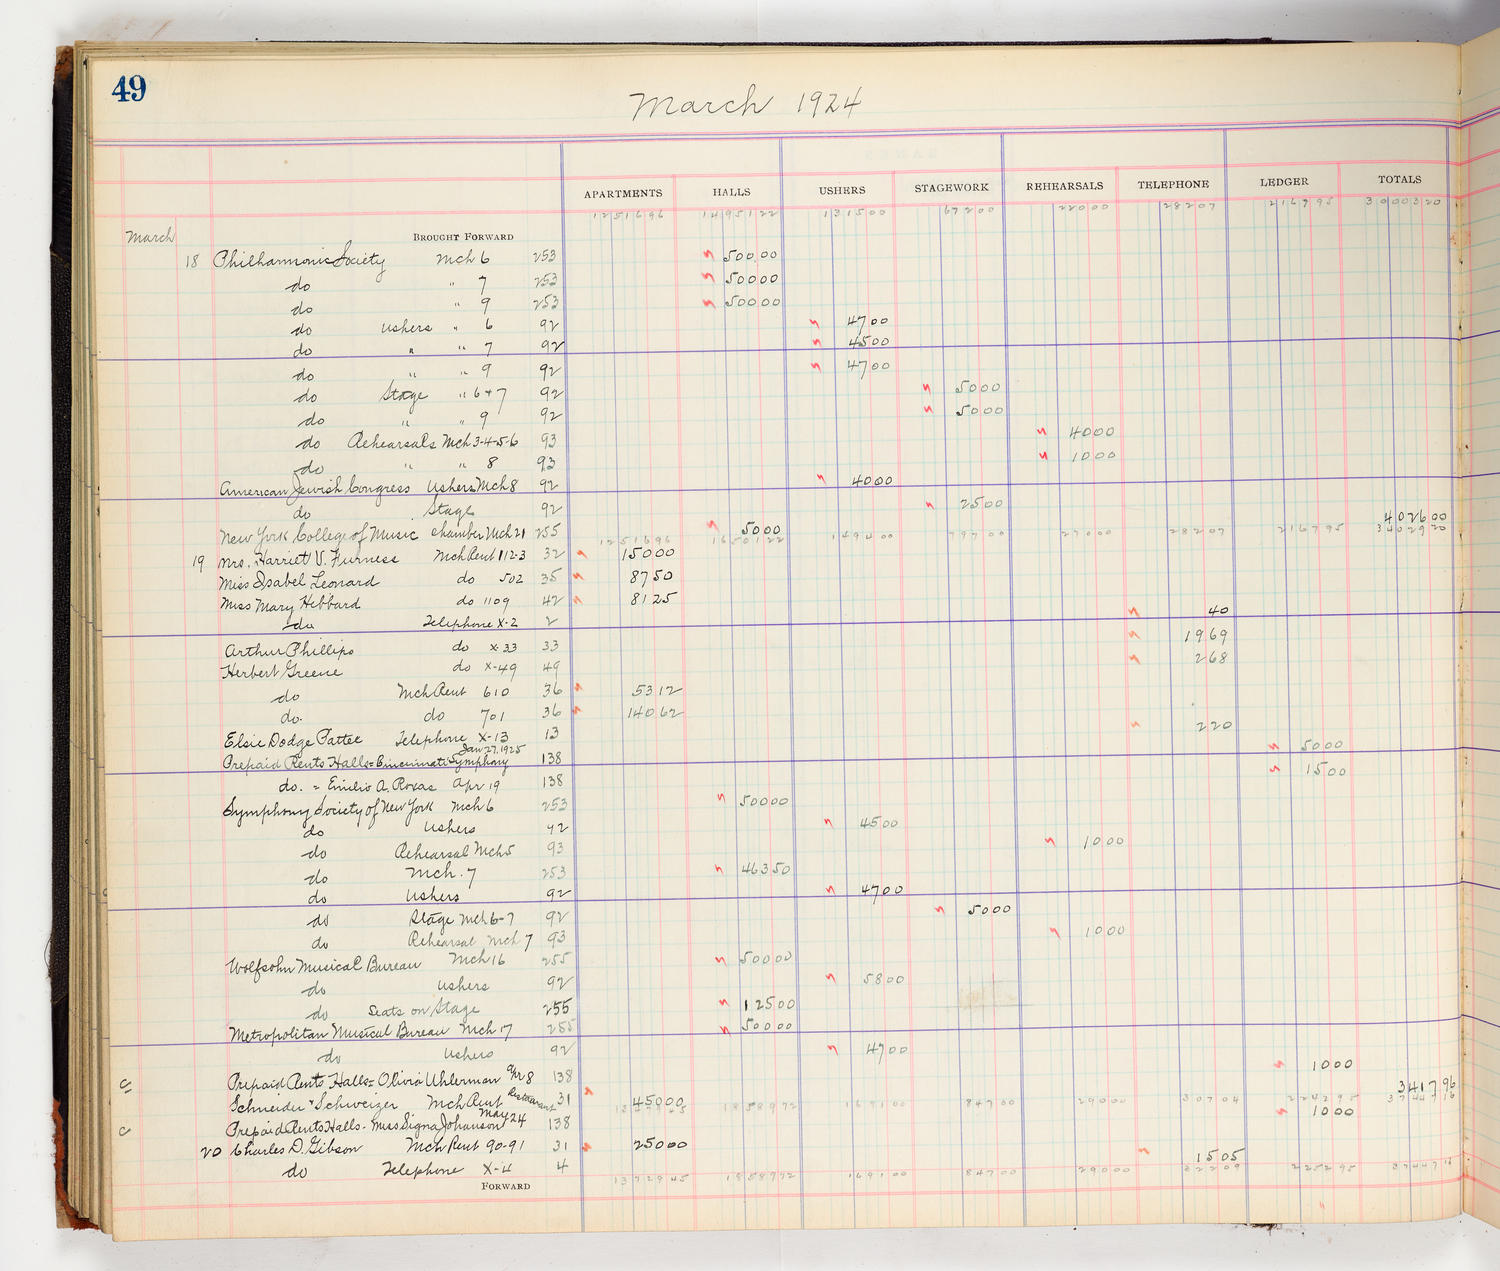 49
March 1924
APARTMENTS HALLS USHERS STAGEWORK REHEARSALS TELEPHONE LEDGER TOTALS
1251696 1495122 131500 67200 22000 28207 216795 3000320
March BROUGHT FORWARD
18 Philharmonic Society Mch 6 253 50000
do " 7 253 50000
do " 9 253 50000
do Ushers " 6 92 4700
do " " 7 92 4500
do " " 9 92 4700
do Stage " 6+7 92 5000
do " " 9 92 5000
do Rehearsals Mch 3-4-5-6 93 4000
do " " 8 93 1000
American Jewish Congress Ushers Mch 8 92 4000
do Stage 92 2500
New York College of Music Chamber Mch 21 255 5000 402600
1251696 1650122 149400 79700 27000 28207 216795 3402920
19 Mrs. Harriet V. Furness Mch Rent 112-3 32 15000
Miss Isabel Leonard do 502 35 8750
Miss Mary Hibbard do 1109 42 8125
do Telephone X-2 2 40
Arthur Phillips do X-33 33 1969
Herbert Greene do X-49 49 268
do Mch Rent 610 36 5312
do. do 701 36 14062
Elsie Dodge Pattee Telephone X-13 13 220
Jan 27, 1925
Prepaid Rents Halls = Cincinnati Symphony 138 5000
do. = Emilio A. Roxas Apr 19 138 1500
Symphony Society of New York Mch 6 253 50000
do Ushers 92 4500
do Rehearsal Mch 5 93 1000
do Mch. 7 253 46350
do Ushers 92 4700
do Stage Mch 6-7 92 5000
do Rehearsal Mch 7 93 1000
Wolfsohn Musical Bureau Mch 16 255 50000
do Ushers 92 5800
do Seats on Stage 255 12500
Metropolitan Musical Bureau Mch 17 255 50000
do Ushers 92 4700
Prepaid Rents Halls = Olivia Uhlerman Apr 8 138 1000
Schneider + Schweizer Mch Rent Restaurant 31 45000 341796
1858972 169100 84700 29000 30704 224295 3744716
Prepaid Rents Halls - Miss Signa Johanson May 24 138 1000
20 Charles D. Gibson Mch Rent 90-91 31 25000
do Telephone X-4 4 1505
FORWARD 1372945 1858972 169100 84700 29000 32209 225295